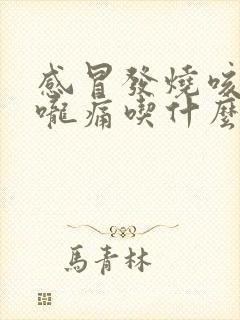 感冒發燒咳
嚨痛喫什麼
馬青林